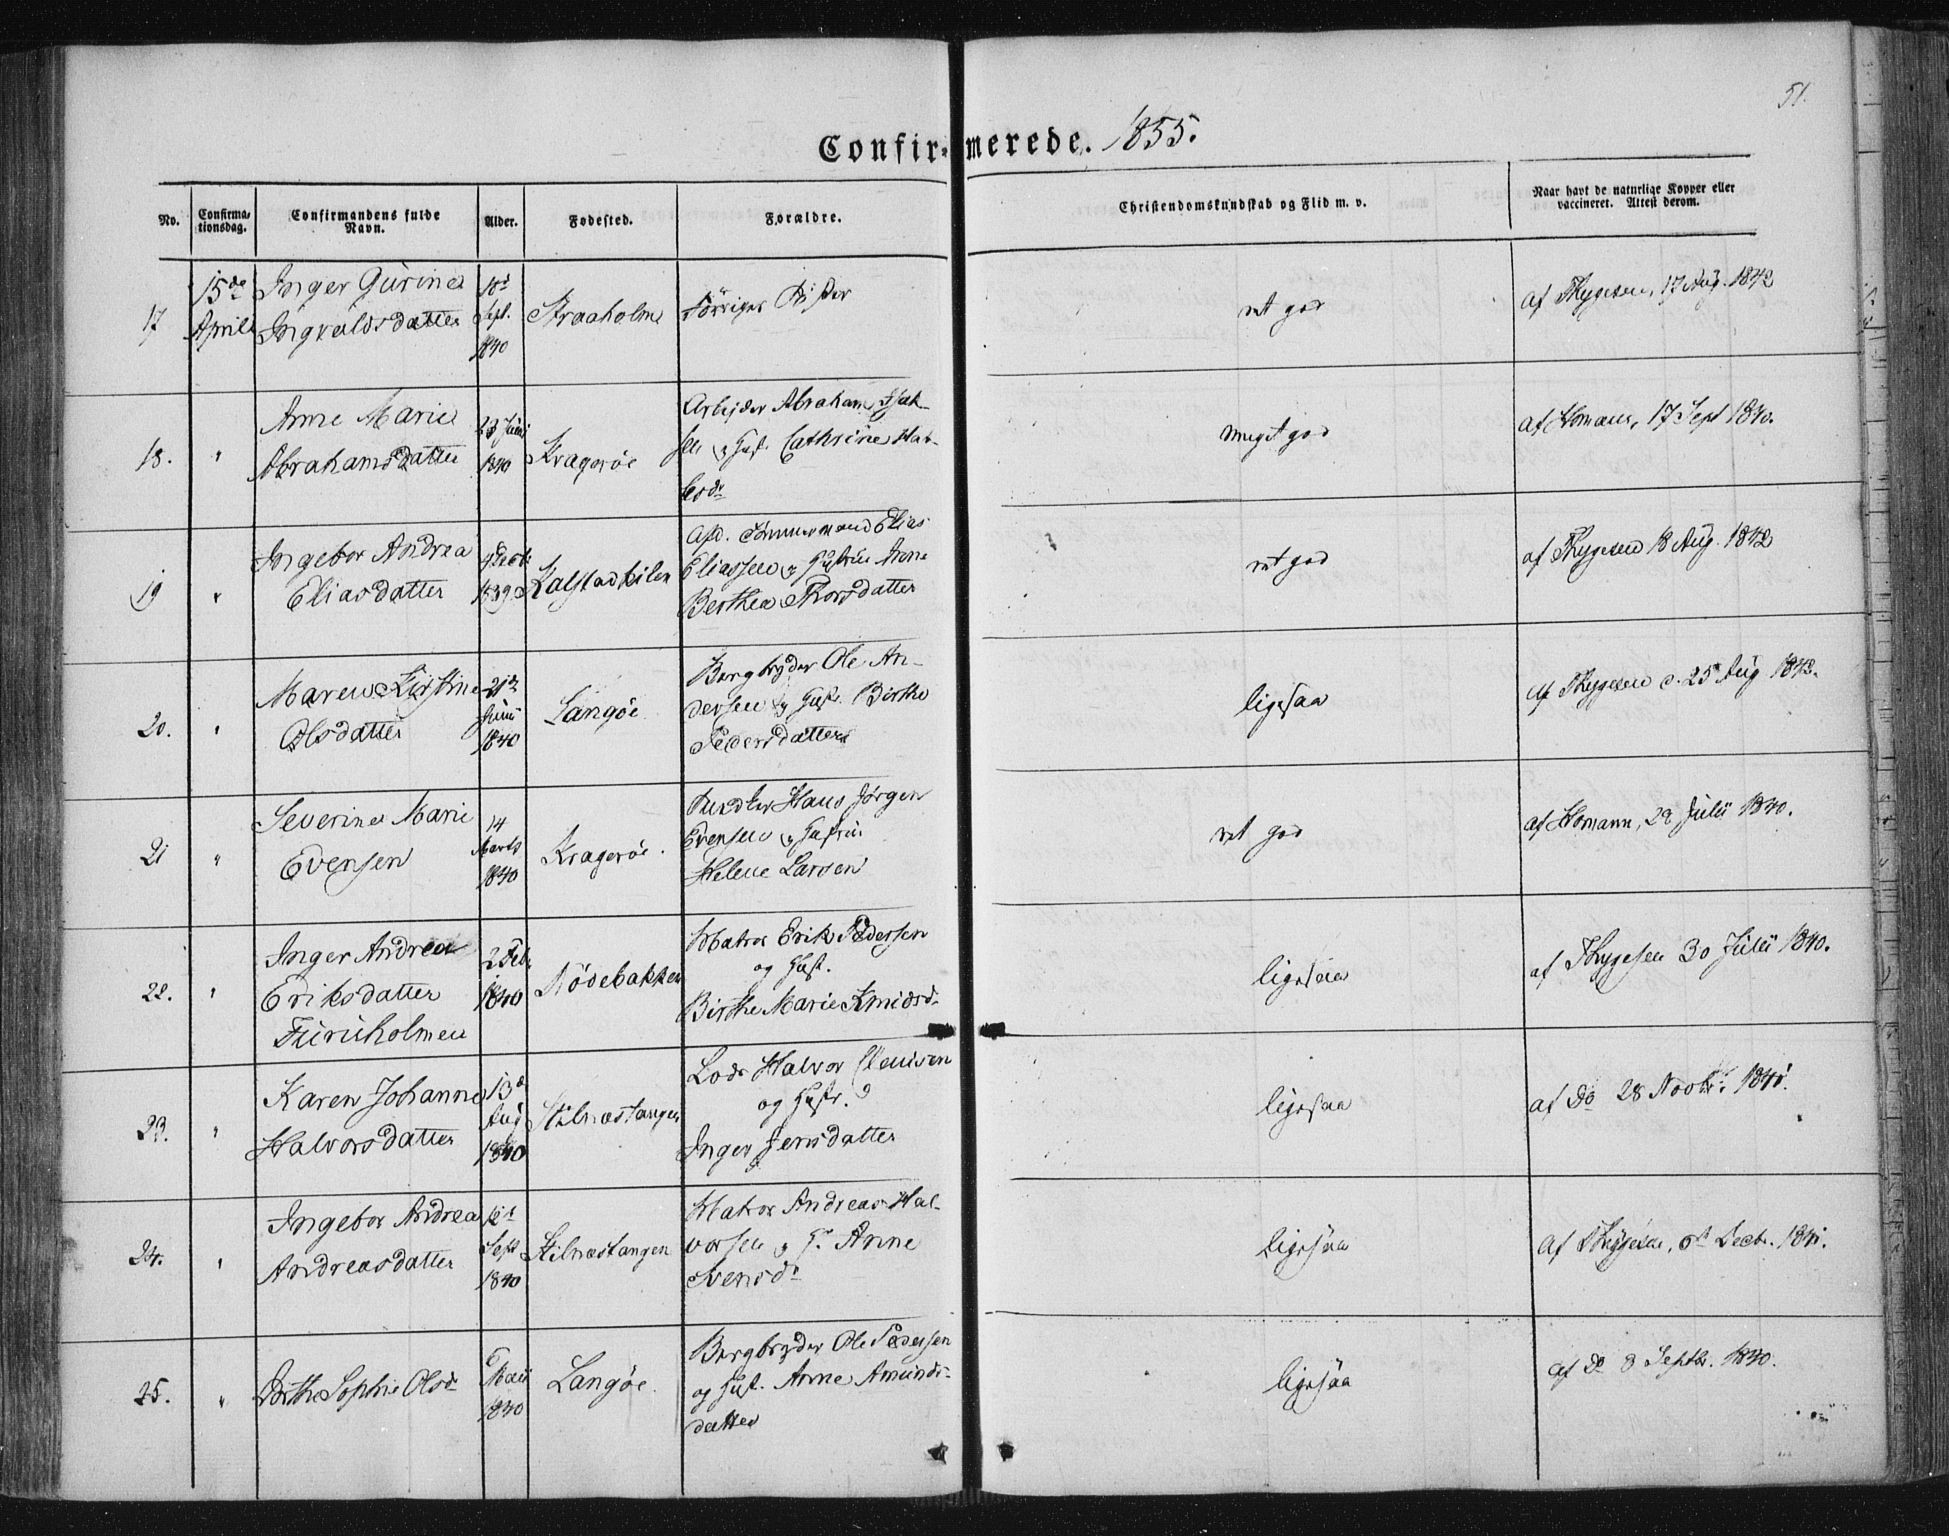 51.
Confirmerede. 1855.
No.
Confirma-
tionsdag.
Confirmandens fulde
Navn.
Alder.
Fødested.
Forældre.
Christendomskundskab og Flid m. v.
Naar havt de naturlige Kopper eller
vaccineret. Attest derom.
17
15de
April
Inger Gurine
Ingvaldsdatter
10d
Sept.
1840
Straaholme
Forriges Sister
ret god
af Thygesen, 17 Aug. 1842
18.
"
Anne Marie
Abrahamsdatter
23 Juni
1840
Kragerøe
Arbejder Abraham Isak-
sen og Hust. Cathrine Hal-
sd
meget god
af Homann, 17 Sept 1840.
19
"
Ingebor Andrea
Eliasdatter
9 Decb:
1839
Kalstadkilen
Tømmermand Elias
Eliassen og Hustrue Anne
Berthea Thorsdatter
ret god
af Thygesen 18 Aug. 1842
20.
"
Maren Kirstine
Olsdatter
21de
Juni
1840
Langøe
Bergbryder Ole An-
dersen og Hust. Birthe
Pedersdatter
ligesaa
af Thygesen d. 25 Aug 1842.
21
"
Severine Marie
Evensen
14
Marts
1840
Kragerøe.
Snedker Hans Jørgen
Evensen og Hustrue
Helene Larsen
ret god
af Homann, 28 Juli 1840.
22.
"
Inger Andrea
Eriksdatter
Furuholmen
2 Feb.
1840
Nødebakken
Matros Erik Pedersen
og Hust.
Birthe Marie Knudsd.
ligesaa
af Thygesen 30 Juli 1840.
23.
"
Karen Johanne
Halvorsdatter
13d
Aug
1840
Stilnæstangen
Lods Halvor
og Hustr.
Inger Jensdatter
ligesaa
af Do 28 Novbr. 1841.
24.
"
Ingebor Andrea
Andreasdatter
12t
Sept
1840
Stilnæstangen
Matros Andreas Hal-
vorsen og H. Anne
Svensd.
ligesaa
af Thygesen, Decbr. 1841.
25.
"
Birthe Sophie Olsd.
6
Mai
1840
Langøe.
Bergbryder Ole Pedersen
og Hust. Anne Amunds-
datter
ligesaa
af Do 8 Septbr. 1840.